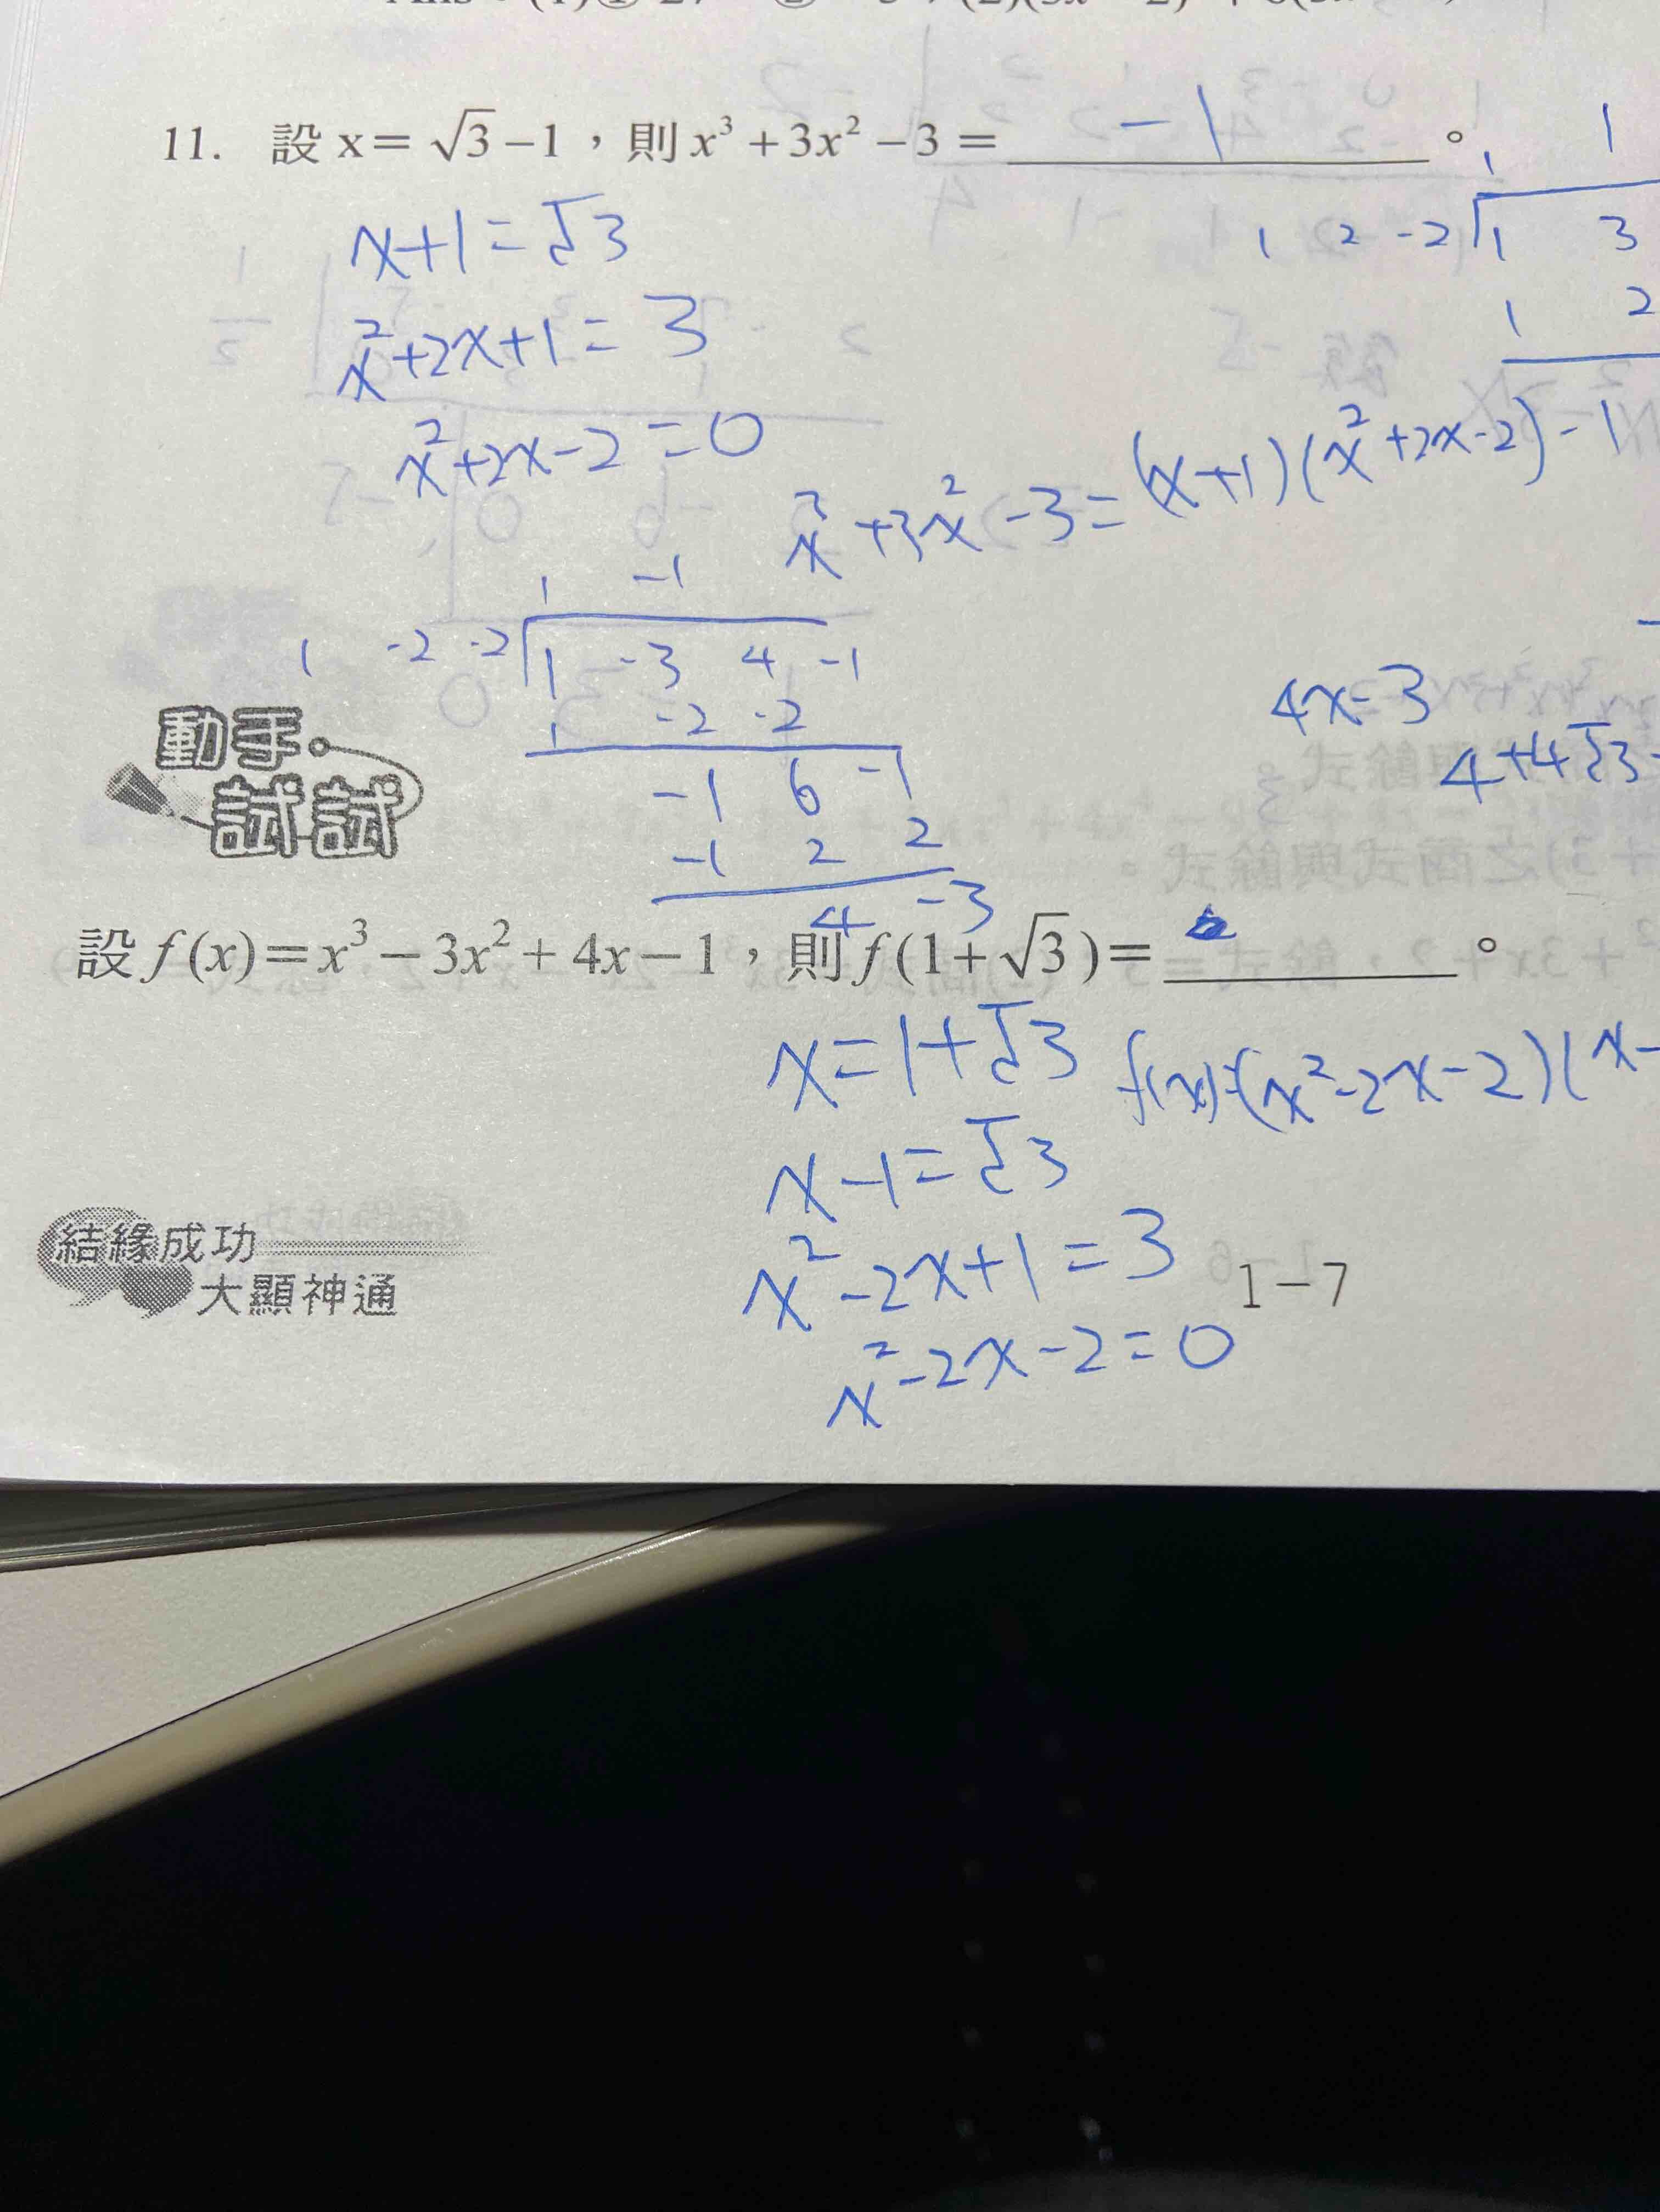 11. 設 x = √3 − 1，則 x³ + 3x² − 3 = −1 。
x+1=√3
x²+2x+1=3
x²+2x-2=0
1 1
1 2 -2 1 3
1 2
x³+3x²-3=(x+1)(x²+2x-2)-1
1 -1
1 -2 -2 1 -3 4 -1
1 -2 -2
-1 6 -1
-1 2 2
4 -3
4x-3
4+4√3-
動手
試試
設 f(x) = x³ − 3x² + 4x − 1，則 f(1+√3) = 。
x=1+√3
f(x)=(x²-2x-2)(x-
x-1=√3
x²-2x+1=3
x²-2x-2=0
結緣成功
大顯神通
1−7